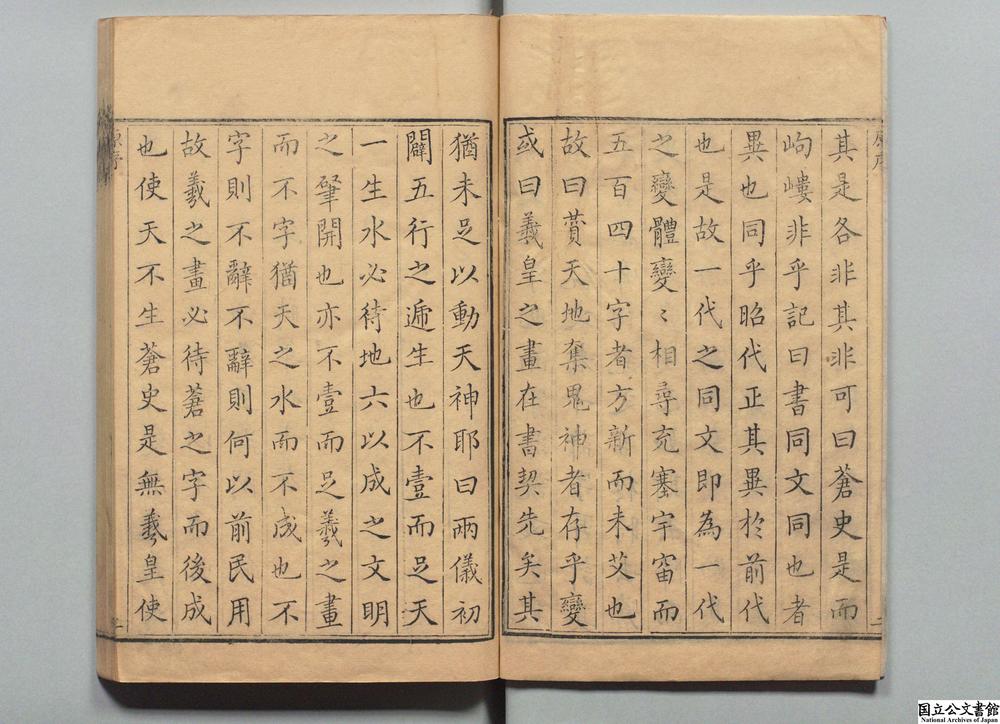 其是各非其非可曰蒼史是而
岣嶁非乎記曰書同文同也者
異也同乎昭代正其異於前代
也是故一代之同文即為一代
之變體變〻相尋充塞宇宙而
五百四十字者方新而未艾也
故曰賁天地奪鬼神者存乎變
或曰羲皇之畫在書契先矣其
猶未足以動天神耶曰兩儀初
闢五行之遞生也不壹而足天
一生水必待地六以成之文明
之肇開也亦不壹而足羲之畫
而不字猶天之水而不成也不
字則不辭不辭則何以前民用
故羲之畫必待蒼之字而後成
也使天不生蒼史是無羲皇使
原序
国立公文書館
National Archives of Japan